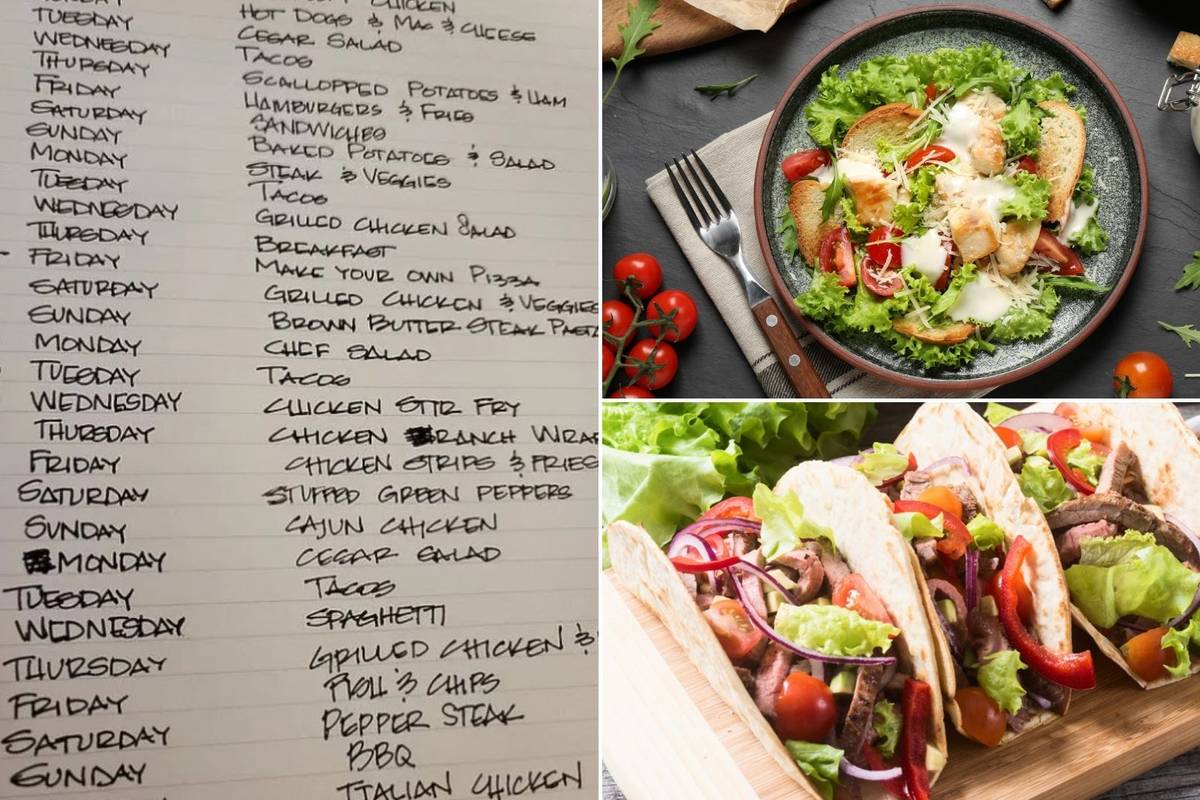 CHICKEN
HOT DOGS & MAC & CHEESE
TUESDAY CESAR SALAD
WEDNESDAY TACOS
THURSDAY SCALLOPPED POTATOES & HAM
FRIDAY HAMBURGERS & FRIES
SATURDAY SANDWICHES
SUNDAY BAKED POTATOES & SALAD
MONDAY STEAK & VEGGIES
TUESDAY TACOS
WEDNESDAY GRILLED CHICKEN SALAD
THURSDAY BREAKFAST
FRIDAY MAKE YOUR OWN PIZZA
SATURDAY GRILLED CHICKEN & VEGGIES
SUNDAY BROWN BUTTER STEAK PASTA
MONDAY CHEF SALAD
TUESDAY TACOS
WEDNESDAY CHICKEN STIR FRY
THURSDAY CHICKEN RANCH WRAP
FRIDAY CHICKEN STRIPS & FRIES
SATURDAY STUFFED GREEN PEPPERS
SUNDAY CAJUN CHICKEN
MONDAY CESAR SALAD
TUESDAY TACOS
WEDNESDAY SPAGHETTI
THURSDAY GRILLED CHICKEN &
FRIDAY & CHIPS
SATURDAY PEPPER STEAK
SUNDAY BBQ
ITALIAN CHICKEN